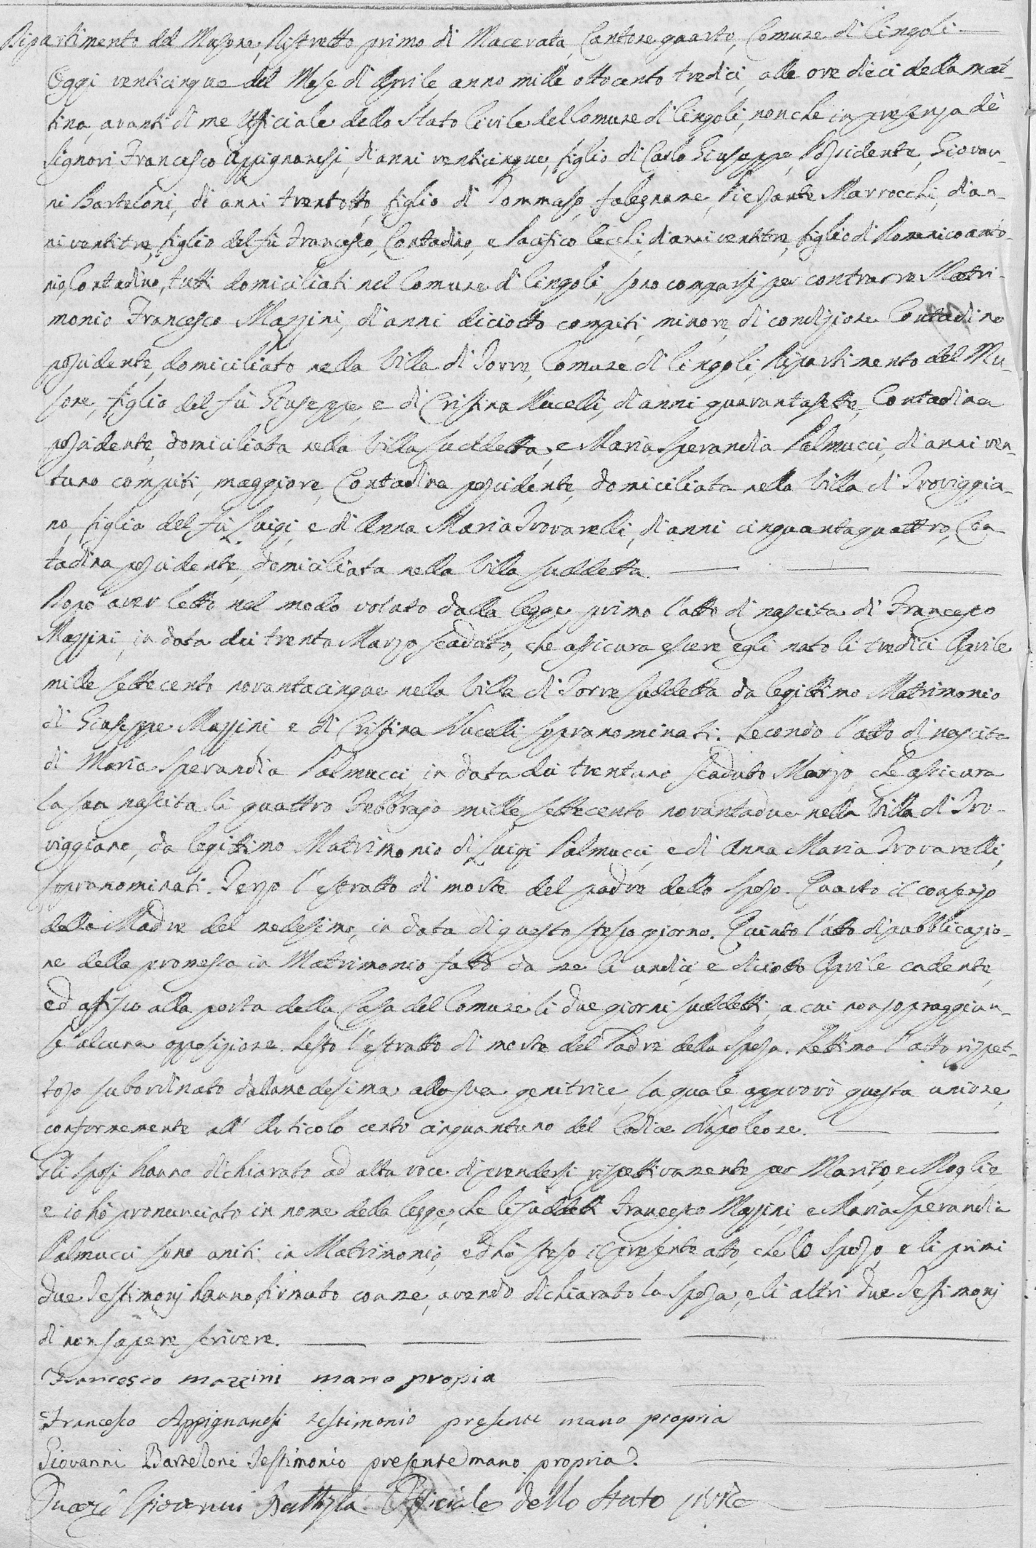 Dipartimento del Musone, Distretto primo di Macerata, Cantone quarto, Comune di Cingoli.
Oggi venticinque del Mese di Aprile anno mille ottocento tredici, alle ore dieci della mat-
tina, avanti di me Ufficiale dello Stato Civile del Comune di Cingoli, nonchè in presenza dè
Signori Francesco Appignanesi, di anni venticinque, figlio di Carlo Giuseppe, Possidente, Giovan-
ni Barteloni, di anni trentotto, figlio di Tommaso, falegname, Marrocchi, d'an-
ni ventitre, figlio del fù Francesco, Contadino, e Pacifico Cecchi, di anni ventitre, figlio di Domenico anto-
nio, Contadino, tutti domiciliati nel Comune di Cingoli, sono comparsi per contrarre Matri-
monio Francesco Mazzini, di anni diciotto compiti, minore, di condizione Contadino
possidente, domiciliato nella Villa di Torre, Comune di Cingoli, Dipartimento del Mu-
sone, figlio del fù Giuseppe, e di Cristina Nucelli, di anni quarantasette, Contadina
possidente, domiciliata nella Villa suddetta, e Maria Sperandia Palmucci, di anni ven-
tuno compiti, maggiore, Contadina possidente, domiciliata nella Villa di Troviggia-
no, figlia del fù Luigi, e di Anna Maria Trovarelli, di anni cinquantaquattro, Con
tadina possidente, domiciliata nella Villa suddetta.
Dopo aver letto nel modo voluto dalla legge, primo l'atto di nascita di Francesco
Mazzini, in data dei trenta Marzo scaduto, che assicura essere egli nato li tredici Aprile
mille settecento novantacinque nella Villa di Torre suddetta da legittimo Matrimonio
di Giuseppe Mazzini e di Cristina Nucelli sopranominati. Secondo l'atto di nascita
di Maria Sperandia Palmucci, in data dei trentuno scaduto Marzo, che assicura
la sua nascita li quattro Febbrajo mille settecento novantadue nella Villa di Tro-
viggiano, da legittimo Matrimonio di Luigi Palmucci, e di Anna Maria Trovarelli,
sopranominati. Terzo l'estratto di morte del padre dello sposo. Quarto il consenso
della Madre del medesimo, in data di questo stesso giorno. Quinto l'atto di pubblicazio-
ne della promessa in Matrimonio fatto da me li undici, e diciotto Aprile cadente,
ed affisso alla porta della Casa del Comune li due giorni suddetti, a cui non sopraggiun-
se alcuna opposizione. Sesto l'estratto di morte del Padre della sposa. Settimo l'atto rispet-
toso subordinato dalla medesima alla sua genitrice, la quale approvò questa unione,
conformemente all' Articolo cento cinquantuno del Codice Napoleone.
Gli sposi hanno dichiarato ad alta voce di prendersi rispettivamente per Marito, e Moglie,
e io hò pronunciato in nome della legge, che li suddetti Francesco Mazzini e Maria Sperandia
Palmucci sono uniti in Matrimonio, ed hò steso il presente atto, che lo sposo, e li primi
due Testimonj hanno firmato con me, avendo dichiarato la sposa, e li altri due Testimonj
di non sapere scrivere.
Francesco mazzini mano propia
Francesco Appignanesi testimonio presente mano propria
Giovanni Barteloni Testimonio presente mano propria.
Giovanni Battista Officiale dello Stato civile